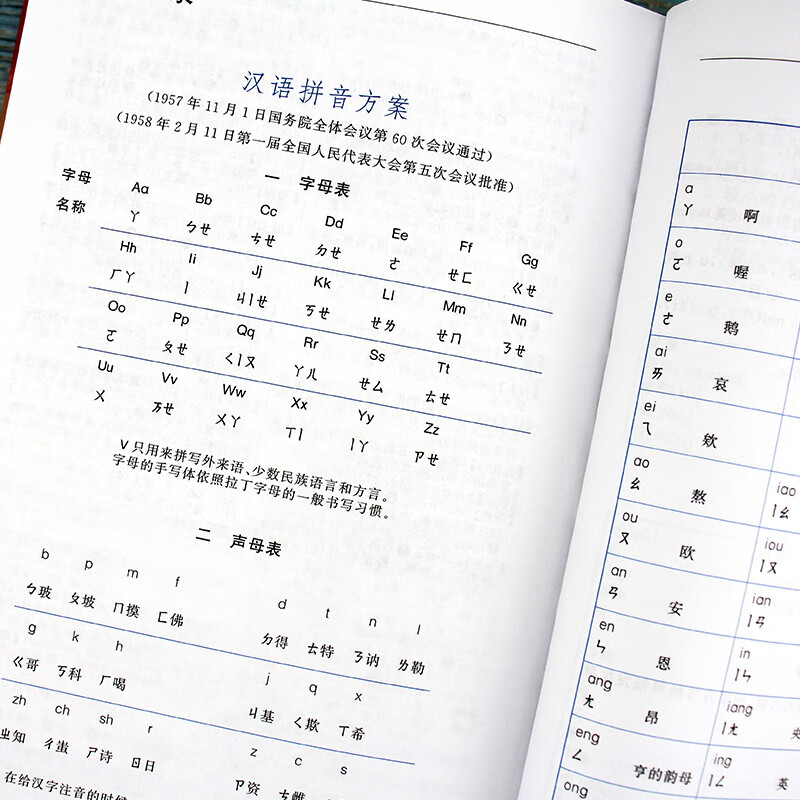 汉语拼音方案
(1957年11月1日国务院全体会议第60次会议通过)
(1958年2月11日第一届全国人民代表大会第五次会议批准)
一 字母表
字母 Aa Bb Cc Dd Ee Ff Gg
名称 ㄚ ㄅㄝ ㄘㄝ ㄉㄝ ㄜ ㄝㄈ ㄍㄝ
Hh Ii Jj Kk Ll Mm Nn
ㄏㄚ ㄧ ㄐㄧㄝ ㄎㄝ ㄝㄌ ㄝㄇ ㄋㄝ
Oo Pp Qq Rr Ss Tt
ㄛ ㄆㄝ ㄑㄧㄡ ㄚㄦ ㄝㄙ ㄊㄝ
Uu Vv Ww Xx Yy Zz
ㄨ ㄪㄝ ㄨㄚ ㄒㄧ ㄧㄚ ㄗㄝ
V只用来拼写外来语、少数民族语言和方言。
字母的手写体依照拉丁字母的一般书写习惯。
二 声母表
b p m f d t n l
ㄅ玻 ㄆ坡 ㄇ摸 ㄈ佛 ㄉ得 ㄊ特 ㄋ讷 ㄌ勒
g k h j q x
ㄍ哥 ㄎ科 ㄏ喝 ㄐ基 ㄑ欺 ㄒ希
zh ch sh r z c s
ㄓ知 ㄔ蚩 ㄕ诗 ㄖ日 ㄗ资 ㄘ雌
在给汉字注音的时候
a
ㄚ 啊
o
ㄛ 喔
e
ㄜ 鹅
ai
ㄞ 哀
ei
ㄟ 欸
ao iao
ㄠ 熬 ㄧㄠ
ou iou
ㄡ 欧 ㄧㄡ
an ian
ㄢ 安 ㄧㄢ
en in
ㄣ 恩 ㄧㄣ
ang iang
ㄤ 昂 ㄧㄤ 央
eng ing
ㄥ 亨的韵母 ㄧㄥ 英
ong